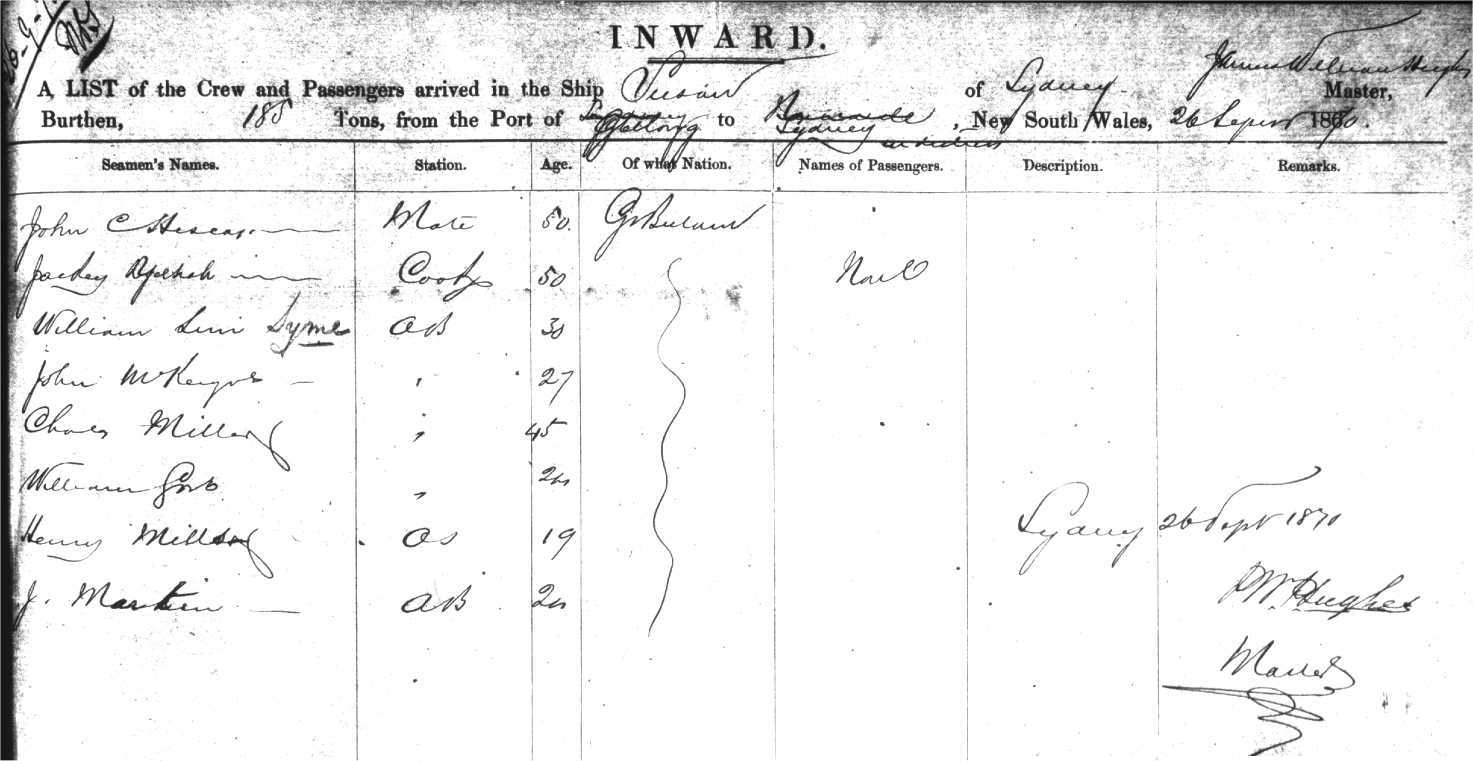 INWARD.
A LIST of the Crew and Passengers arrived in the Ship Susan of Sydney James William Hughes Master,
Burthen, 188 Tons, from the Port of to Sydney , New South Wales, 26 Sepr 1870.
Seamen's Names. Station. Age. Of what Nation. Names of Passengers. Description. Remarks.
John C Mate 50. Gt Britain
Jackey Cook 50 Nail
William Sim Syme AB 30
John " 27
Charles Miller " 45
William "
Henry OS 19 Sydney 26 Sept 1870
J. Martin AB
JW. Hughes
Master